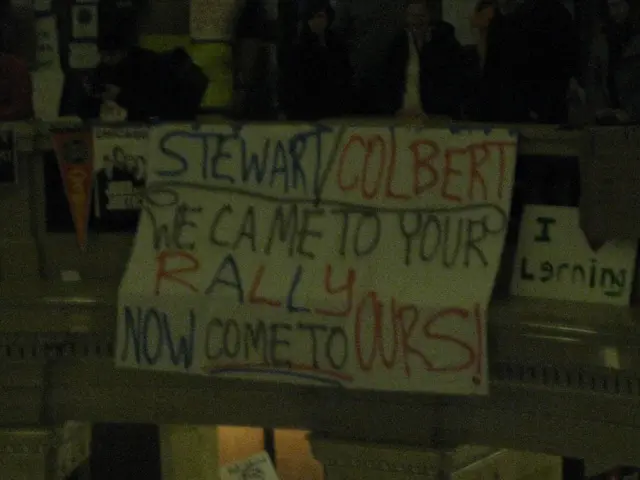 STEWART/COLBERT
WE CAME TO YOUR
RALLY
NOW COME TO OURS!
I
Lerning